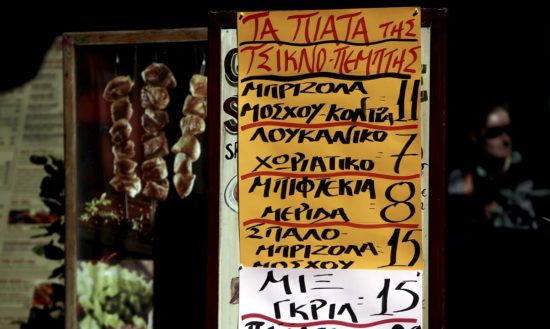 ΤΑ ΠΙΑΤΑ ΤΗΣ
ΤΣΙΚΝΟ-ΠΕΜΠΤΗΣ
ΜΠΡΙΖΟΛΑ
ΜΟΣΧΟΥ-ΚΟΝΤΡΑ 11
ΛΟΥΚΑΝΙΚΟ
ΧΩΡΙΑΤΙΚΟ 7
ΜΠΙΦΤΕΚΙΑ
ΜΕΡΙΔΑ 8
ΣΠΑΛΟ-
ΜΠΡΙΖΟΛΑ 15
ΜΟΣΧΟΥ
ΜΙΞ
ΓΚΡΙΛ 15